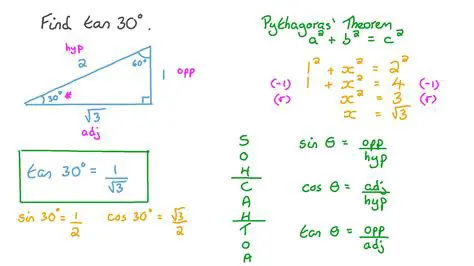 Find tan 30°.
hyp
2
60°
1 opp
30° *
√3
adj
tan 30° = 1/√3
sin 30° = 1/2 cos 30° = √3/2
Pythagoras' Theorem
a² + b² = c²
1² + x² = 2²
(-1) 1 + x² = 4 (-1)
(r) x² = 3 (r)
x = √3
S
O
H
C
A
H
T
O
A
sin θ = opp/hyp
cos θ = adj/hyp
tan θ = opp/adj